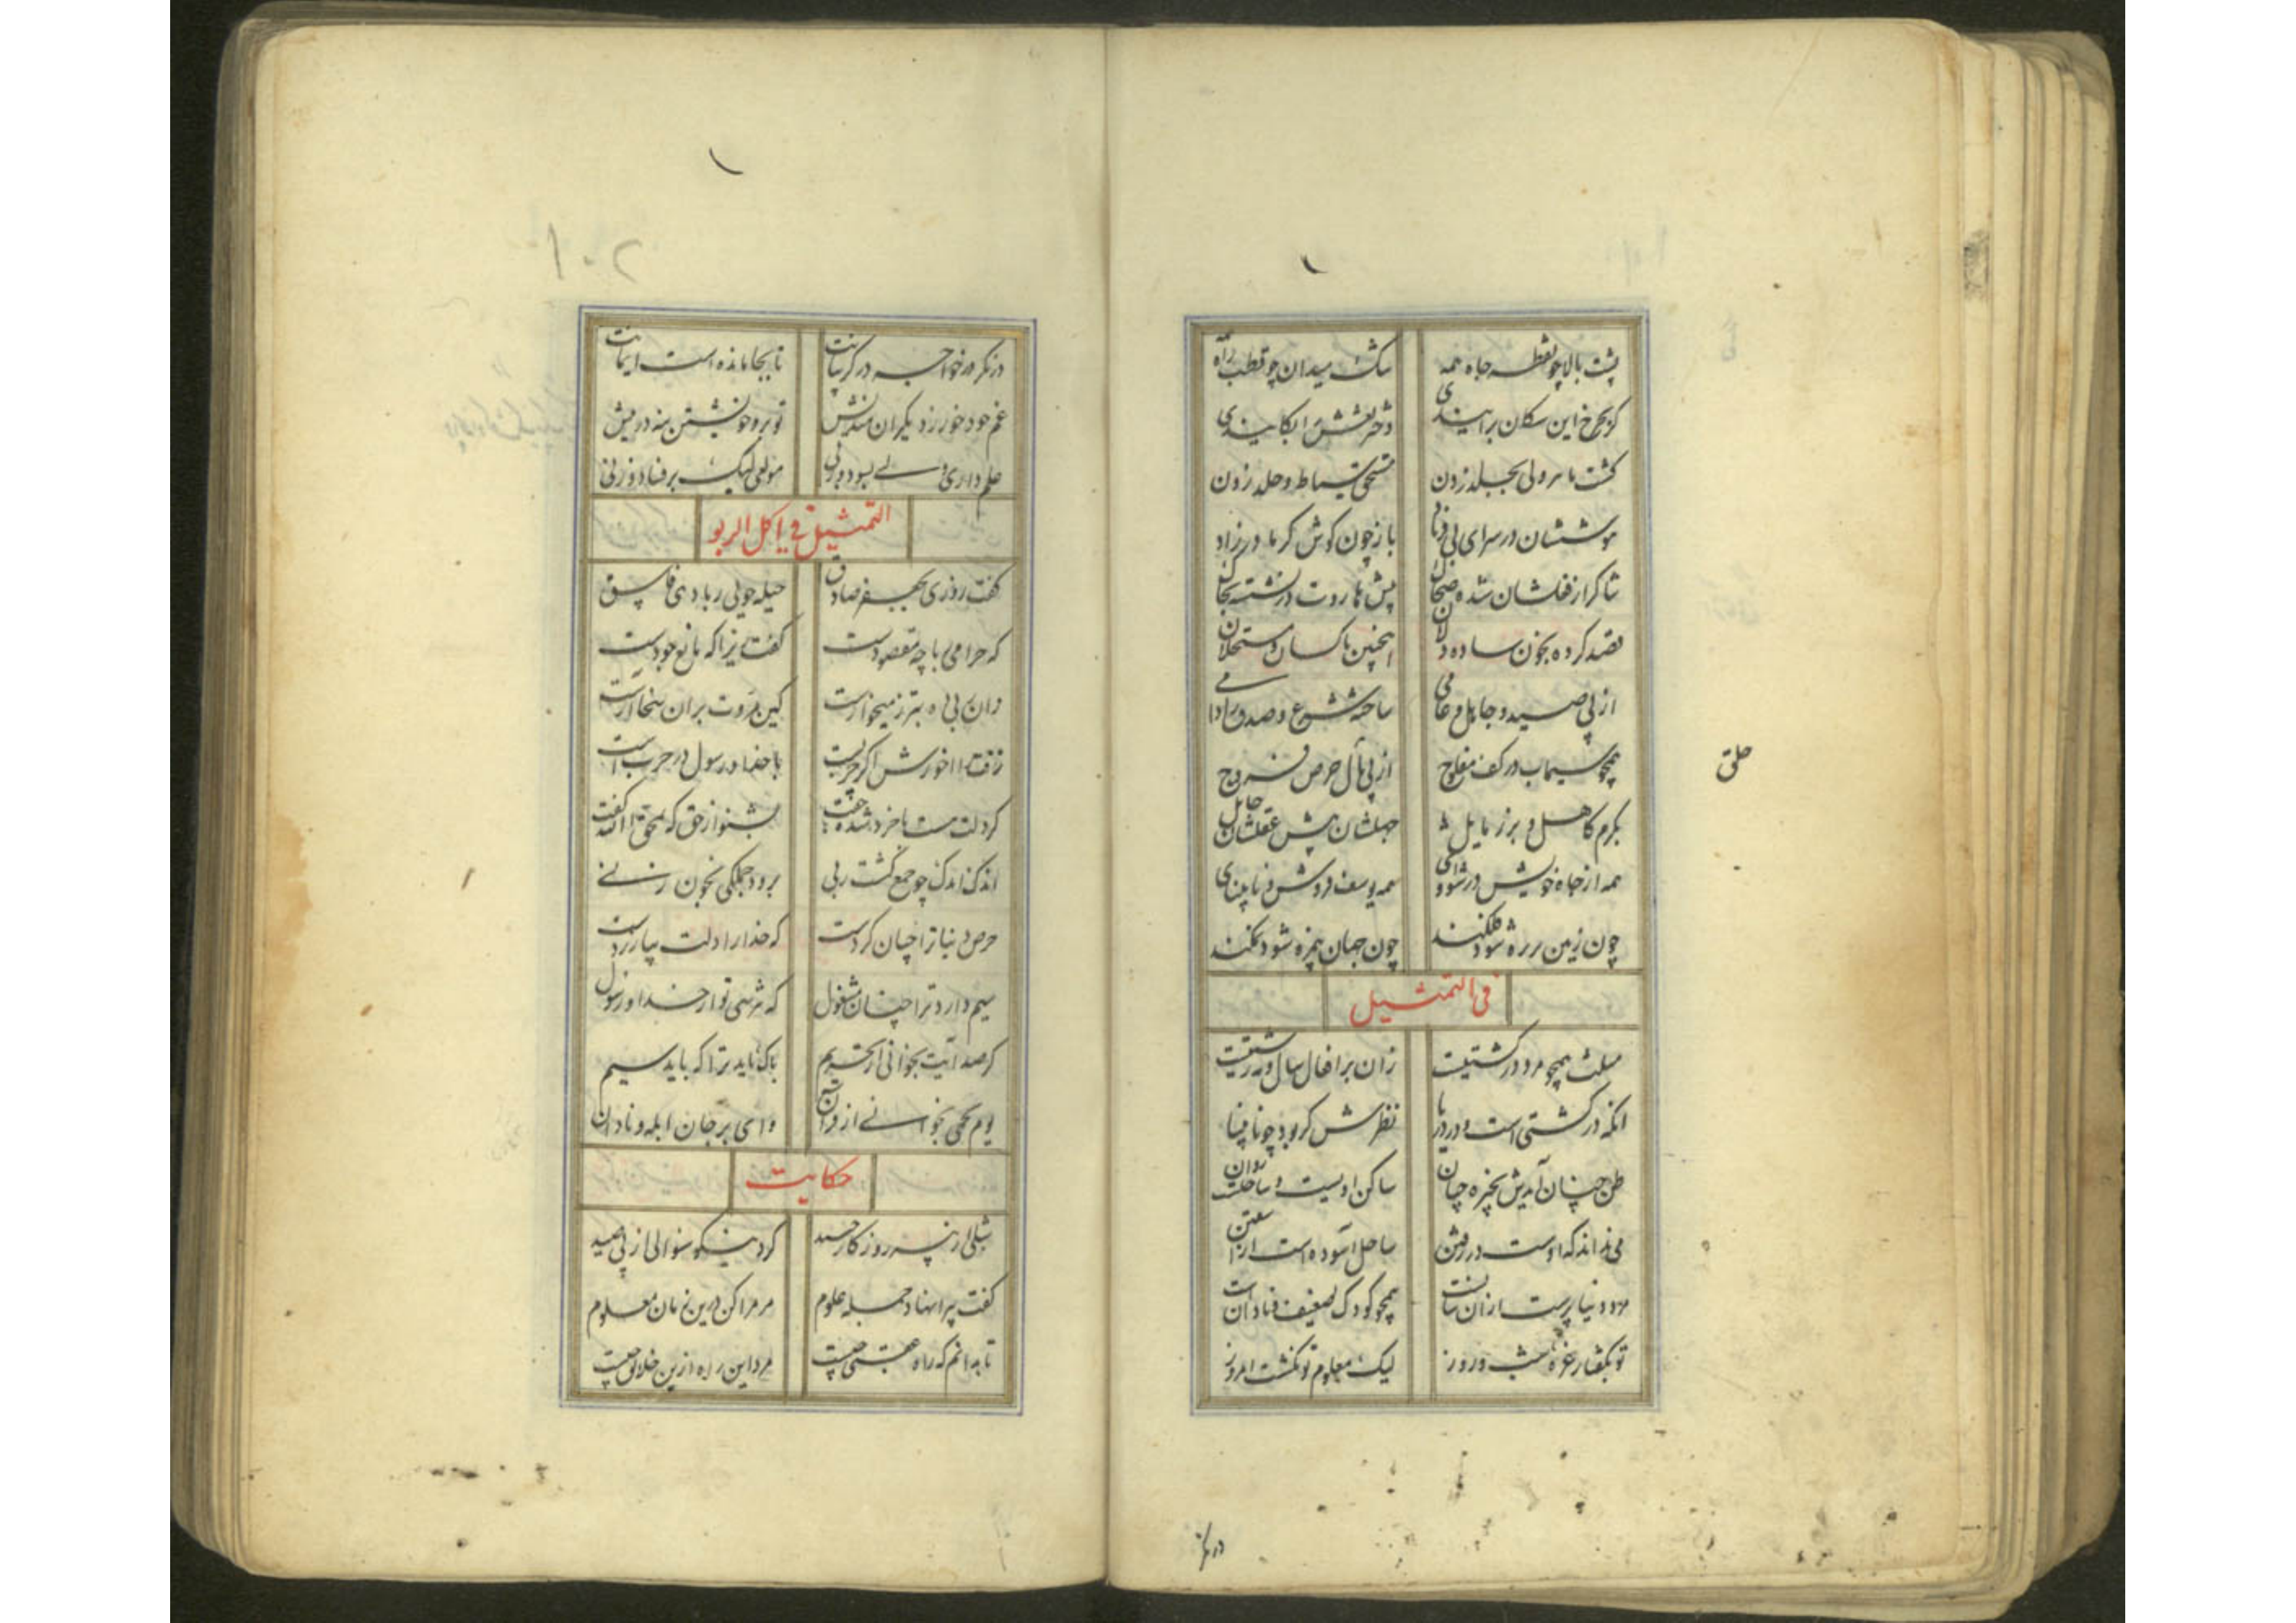 پشت بالا چو نقطه جاه همه سگ میدان چو قطب راه همه
گر بچرخ این سکان براییندی دختر نعش را بگایندی
گشته با هر ولی بجبله زدن
موششان در سرای بی فریاد باز چون گوش کر مادرزاد
شاکر از فعلشان شده ضحاک پیش هاروت در نشسته بخاک
قصد کرده بخون ساده دلان اینچنین ناکسان و مستحلان
از پی صید و جاهل و عامی ساخته شرع و صدق را دامی
همچو سیماب در کف مفلوج از پی مال حرص و فروج
بکرم کاهل و برز مایل جهلشان پیش عقلشان حایل
همه از جاه خویش در شادی همه یوسف فروش و نابینای
چون زمین بر ره شود گلگند چون جهان پیزه شود نکند
فی التمثیل
مثلت همچو مرد در کشتیست زان بر افعال سال و مه زشتیست
آنکه در کشتی است و در دریا نظرش کژ بود چو نابینا
ظن چنان آیدش بخیره چنان ساکن اویست و ساحلست روان
می نداند که اوست در رفتن ساحل آسوده است از آشفتن
مرد دنیا پرست ازان سانست همچو کودک ضعیف و نادانست
تو بگفتار غره شب و روز لیک معلوم تو نگشت امروز
خلق
در نکر
۱۰۲
در نکر در خواجه در گریبانت تا بجا مانده است ایمانت
غم خود خور ز دیگران مندیش تو بره خویشتن بنه در پیش
علم داری ولی بسود و زنی مولعی لیک بر فساد و زنی
التمثیل فی اکل الربو
گفت روزی بجعفر صادق حیله جویی ربا دهی فاسق
که حرامی ربا چه مقصودست گفت زیرا که مانع جودست
زان ربا ده بتر ز میخوارست کین مروت بران سخا آرست
زفت را خورش اگر چربست با خدا و رسول در حربست
گر دلت هست با خرد شده جفت بشنو از حق که یمحق الله گفت
اندک اندک چو جمع گشت ربی برود جملگی بخون رزی
حرص دنیا ترا چنان کردست که خدا را دلت بیازردست
سیم دارد ترا چنان مشغول که نترسی تو از خدا و رسول
گر صد آیت بخوانی از تحریم باک ناید ترا که باید سیم
یوم یحمی بخوانی از قرآن وای بر جان ابله و نادان
حکایت
شبلی از پیر روزگار جنید کرد نیکو سوالی از پی صید
گفت پیرا نهاد جمله علوم مر مرا کن درین زمان معلوم
تا بدانم که راه عقبی چیست مرد این راه ازین خلایق کیست